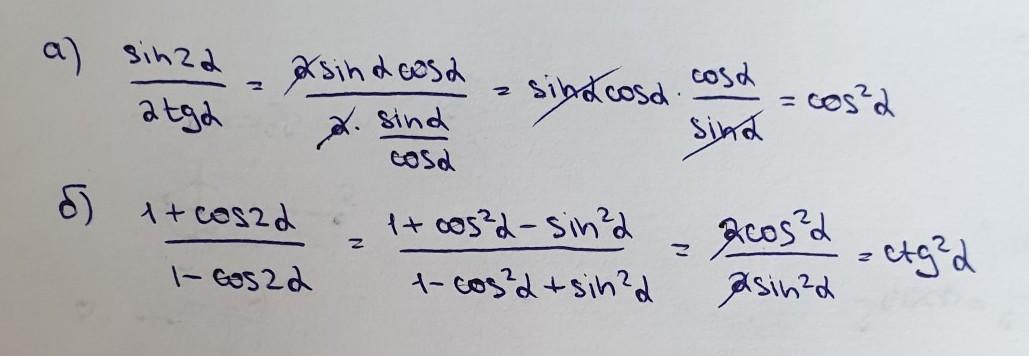 а) sin2α / 2tgα = 2sinαcosα / 2·sinα/cosα = sinαcosα · cosα/sinα = cos²α
б) 1+cos2α / 1-cos2α = 1+cos²α-sin²α / 1-cos²α+sin²α = 2cos²α / 2sin²α = ctg²α